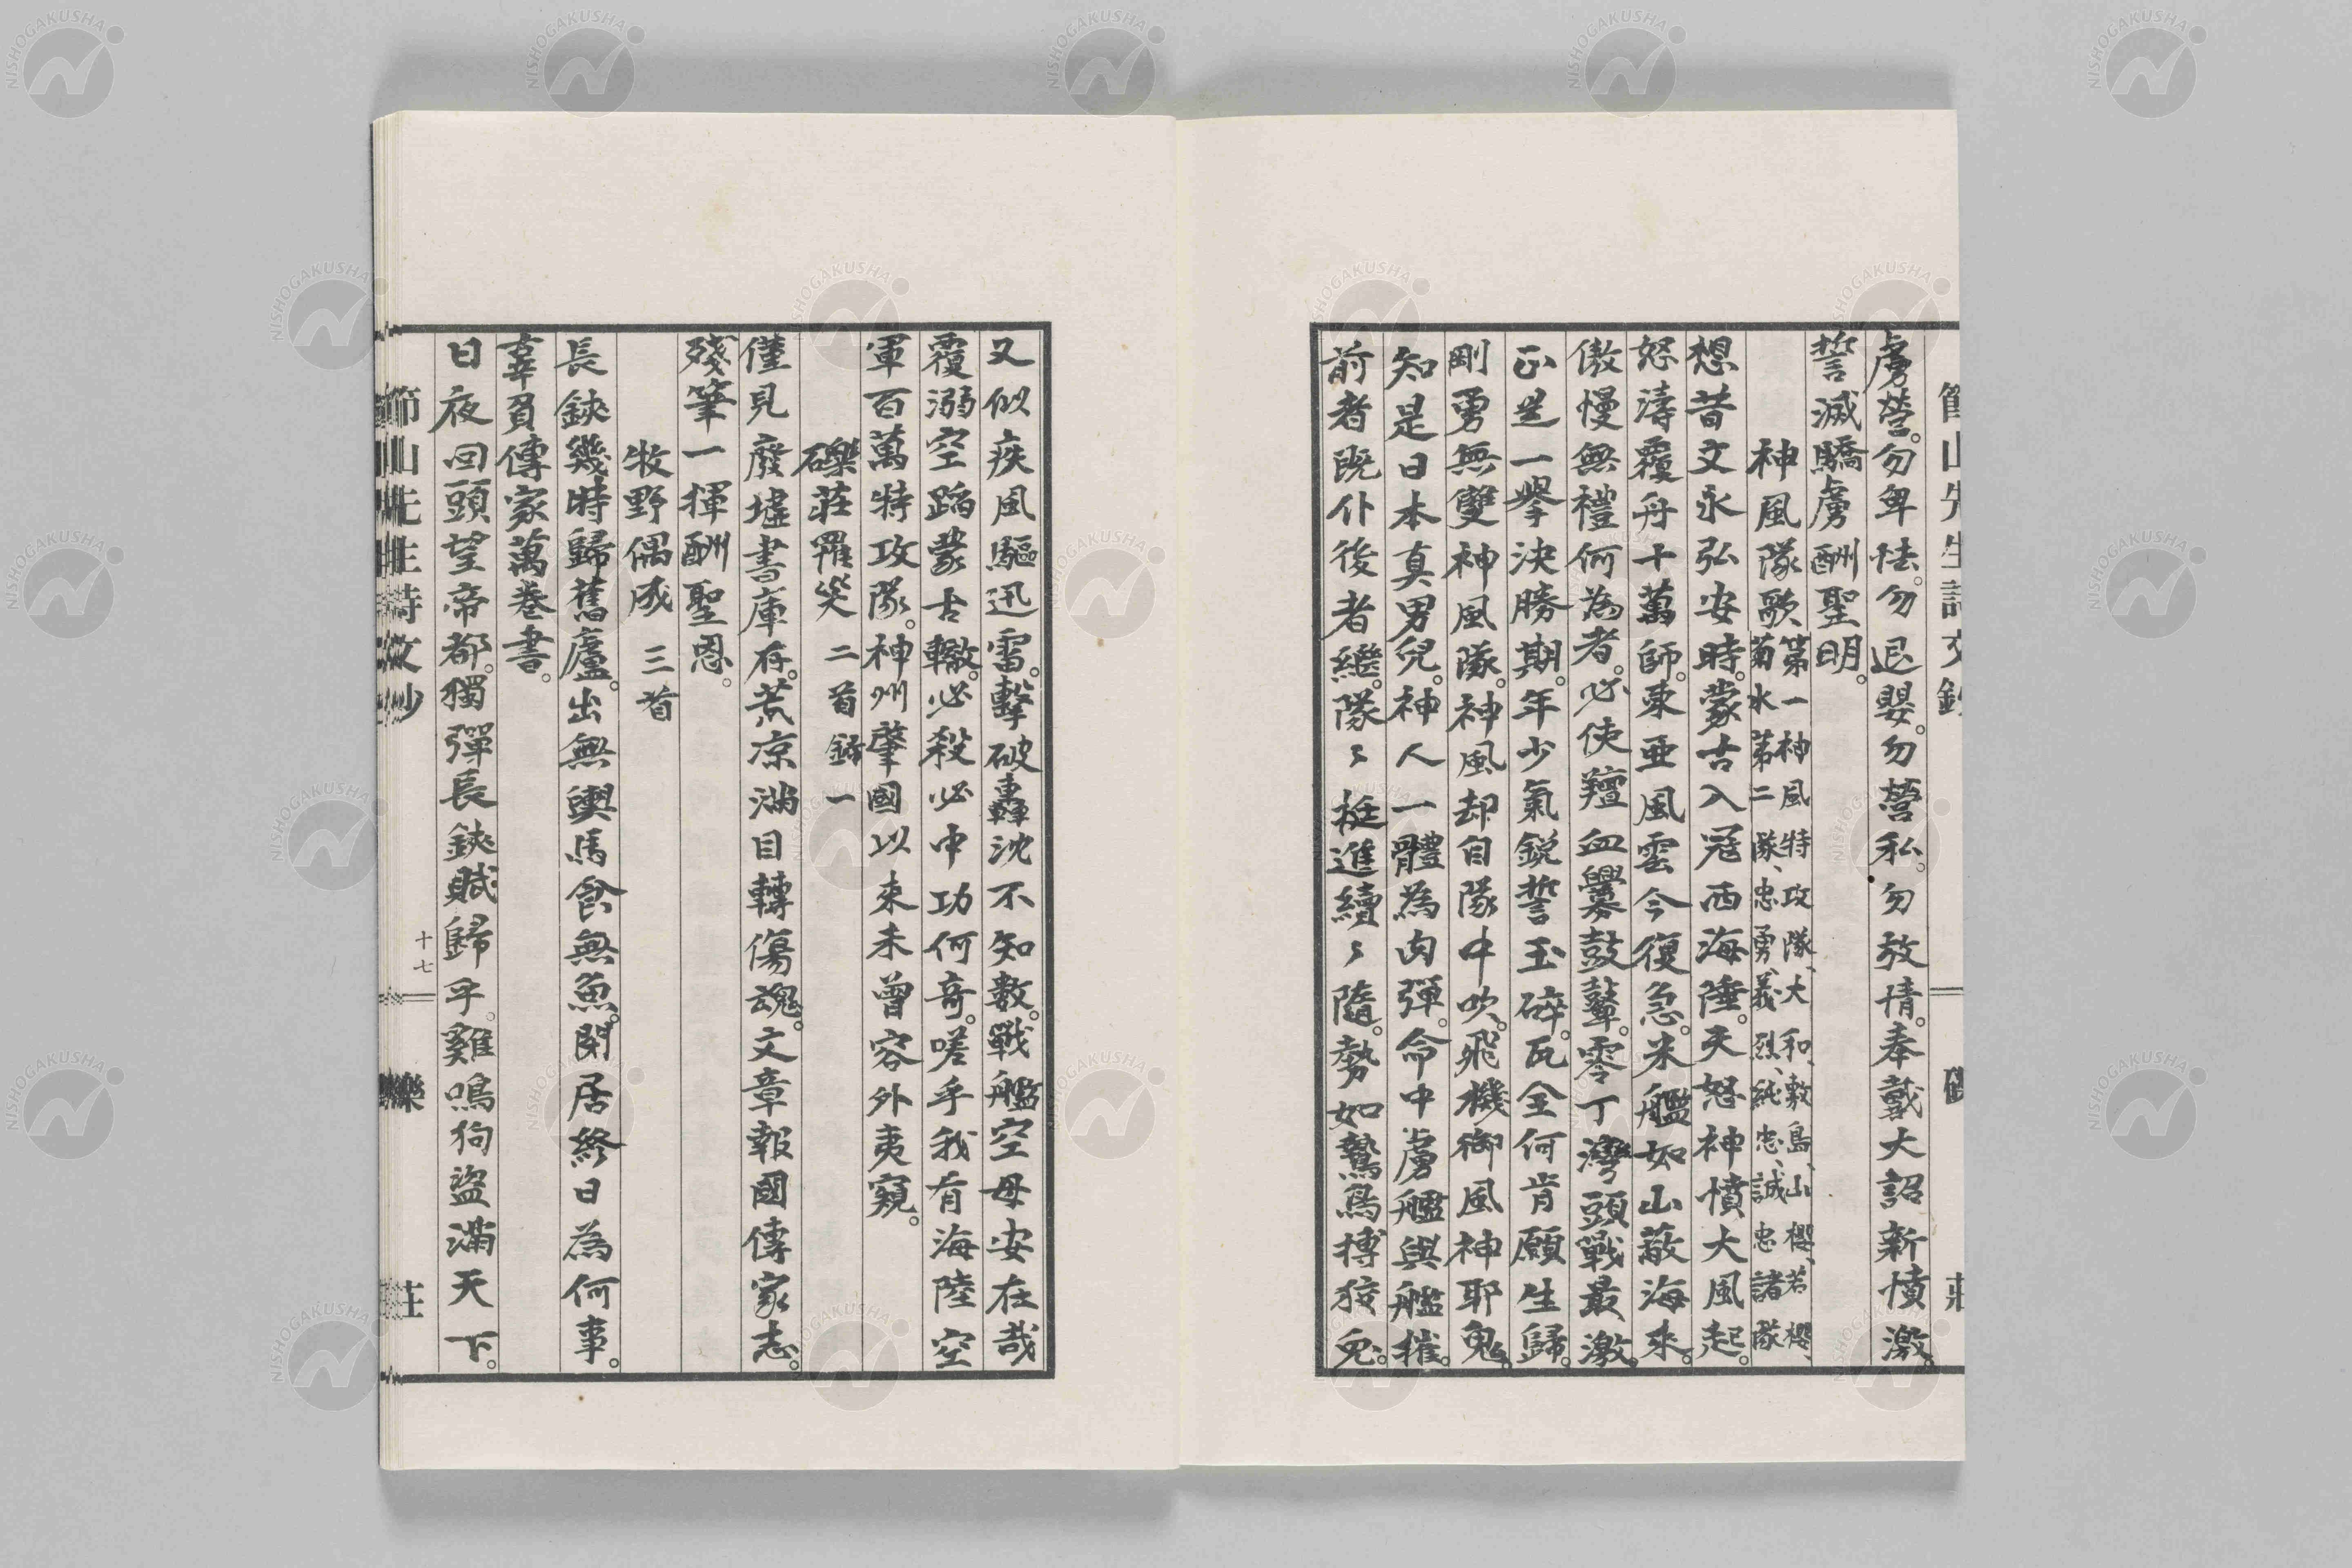 虜營。勿卑怯。勿退嬰。勿營私。勿放情。奉戴大詔新憤激。
誓滅驕虜酬聖明。
神風隊歌 第一神風特攻隊、大和、敷島、山櫻、若櫻、
菊水第二隊、忠勇義烈、純忠、誠忠諸隊
想昔文永弘安時。蒙古入冦西海陲。天怒神憤大風起。
怒濤覆舟十萬師。東亜風雲今復急。米艦如山蔽海来。
傲慢無禮何為者。必使羶血釁鼓鼙。零丁灣頭戰最激。
正是一擧決勝期。年少氣鋭誓玉碎。瓦全何肯願生歸。
剛勇無雙神風隊。神風却自隊中吹。飛機御風神耶鬼。
知是日本真男兒。神人一體為肉彈。命中虜艦與艦摧。
前者既仆後者繼。隊〻挺進續〻隨。勢如鷙鳥搏狡兎。
又似疾風驅迅雷。擊破轟沈不知數。戰艦空母安在哉
覆溺空蹈蒙古轍。必殺必中功何奇。嗟乎我有海陸空
軍百萬特攻隊。神州肇國以来未曾容外夷窺。
礫莊罹災 二首錄一
僅見廢墟書庫存。荒凉滿目轉傷魂。文章報國傳家志。
殘筆一揮酬聖恩。
牧野偶成 三首
長鋏幾時歸舊廬。出無輿馬食無魚。閑居終日為何事。
辜負傳家萬巻書。
日夜回頭望帝都。獨彈長鋏賦歸乎。雞鳴狗盜滿天下。
節山先生詩文鈔
十七
礫
莊